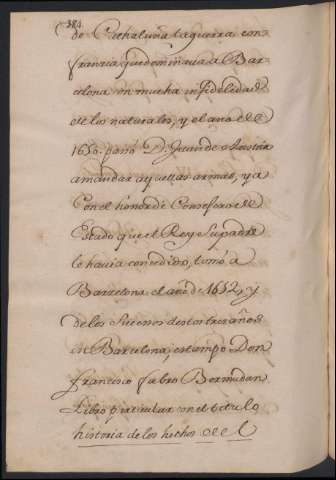 384.
de Cathaluña la guerra con
francia que dominaua a Bar-
celona con mucha infidelidad
de los naturales, y el año de
1650. passó D. Juan de Austria
a mandar aquellas armas, ya
Con el honor de Consejero de
Estado que el Rey Su padre
le hauia concedido, tomó a
Barzelona el año de 1652, y
de los Sucesos destos tres años
en Barcelona, estampo Don
francisco fabro Bermudan
Libro particular con el titulo
historia de los hechos de el